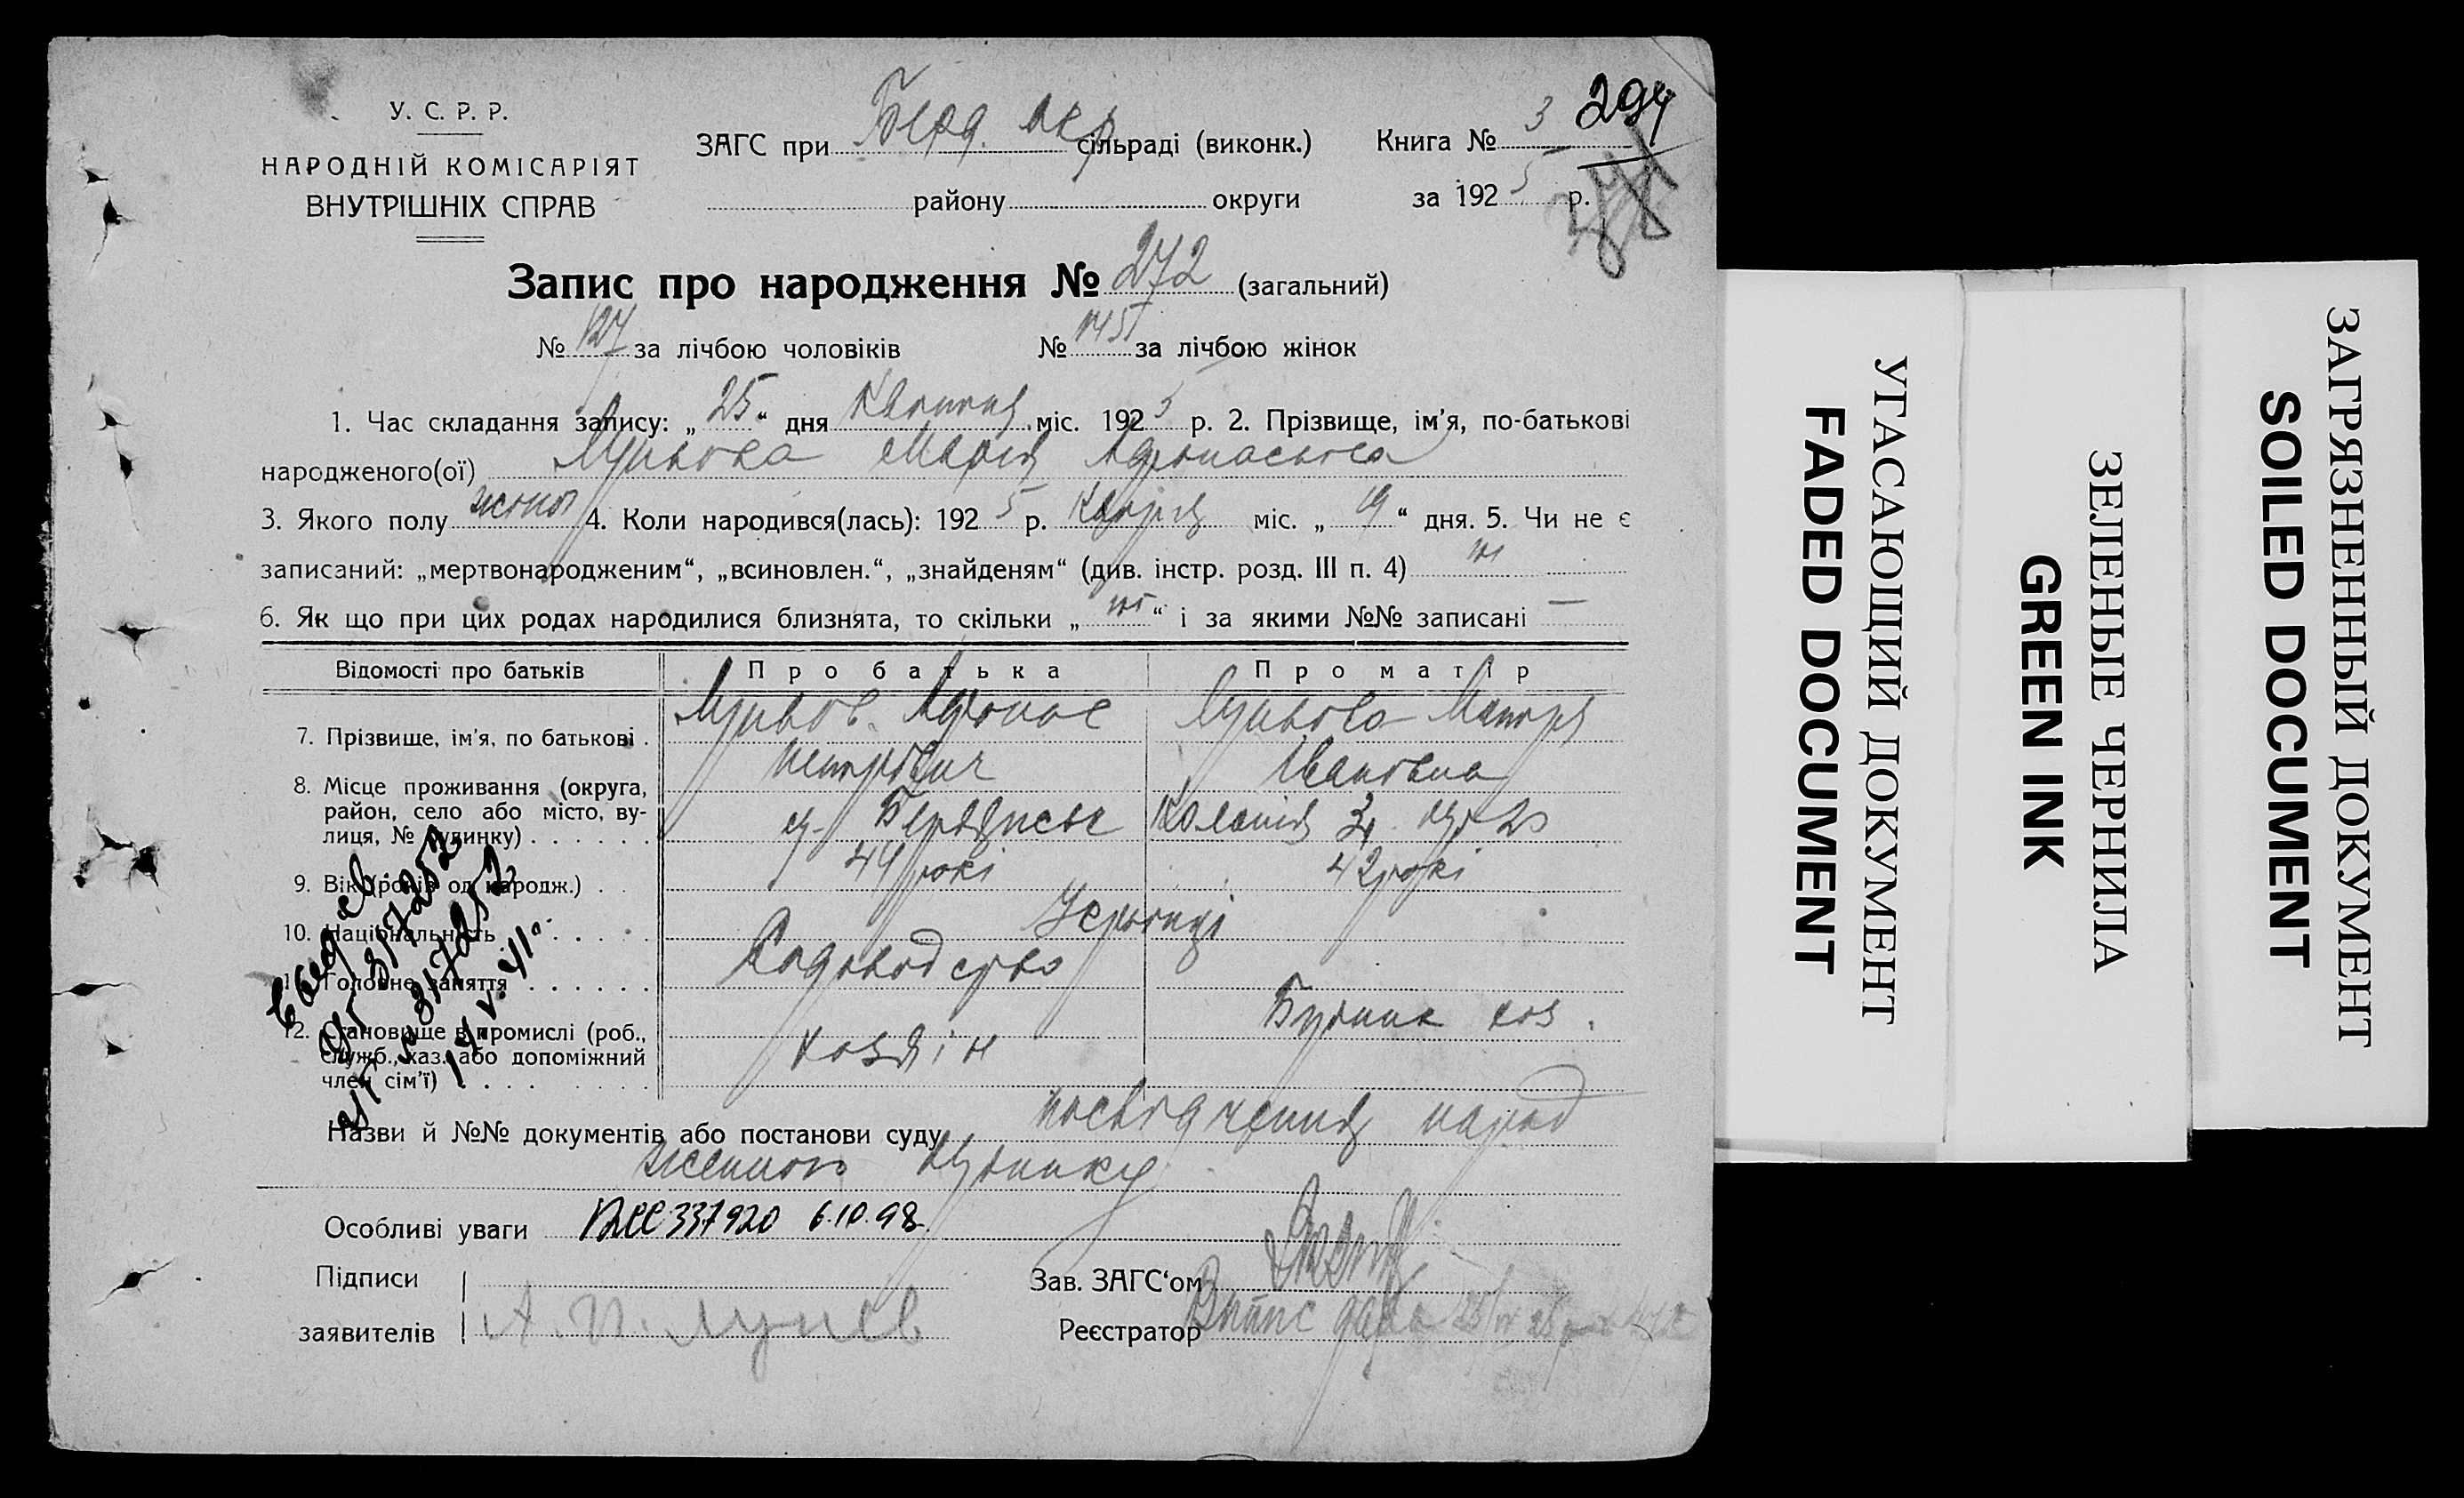 У. С. Р. Р.
НАРОДНІЙ КОМІСАРІЯТ
ВНУТРІШНІХ СПРАВ
ЗАГС при Берд. окр сільраді (виконк.)
району округи
Книга № 3
294
за 1925 р.
Запис про народження № 272 (загальний)
№ 127 за лічбою чоловіків № 145 за лічбою жінок
1. Час складання запису: „25“ дня Квітня міс. 1925 р. 2. Прізвище, ім'я, по-батькові
народженого(ої) Луньова Марія Афонасьєва
3. Якого полу жіноч 4. Коли народився(лась): 1925 р. Квітня міс. „19“ дня. 5. Чи не є
записаний: „мертвонародженим“, „всиновлен.“, „знайденям“ (див. інстр. розд. III п. 4) ні
6. Як що при цих родах народилися близнята, то скільки „ні“ і за якими №№ записані —
Відомості про батьків Про батька Про матір
7. Прізвище, ім'я, по батькові . Луньов Афонас Петрович Луньова Мотря Івановна
8. Місце проживання (округа,
район, село або місто, ву-
лиця, № будинку) . . . . . . м. Бердянськ Колонія
9. Вік (років од народж.) . . 44 рокі 42 рокі
10. Національність . . . . .
11. Головне заняття . . . . . . Садоводство
12. Становище в промислі (роб.,
служб., хаз. або допоміжний
член сім'ї) . . . . . . . . хозяїн
Назви й №№ документів або постанови суду посвідчення народ
женого
Особливі уваги 337920 6.10.98.
Підписи
заявителів А. П. Лунев
Зав. ЗАГС'ом
Реєстратор Випис
УГАСАЮЩИЙ ДОКУМЕНТ
FADED DOCUMENT
ЗЕЛЕНЫЕ ЧЕРНИЛА
GREEN INK
ЗАГРЯЗНЕННЫЙ ДОКУМЕНТ
SOILED DOCUMENT